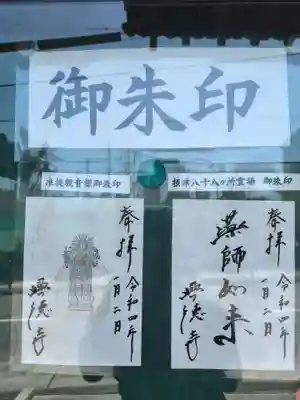 御朱印
准胝観音様御朱印
奉拝
令和四年
一月二日
興徳寺
摂津八十八ヶ所霊場 御朱印
奉拝
令和四年
一月二日
薬師如来
興徳寺